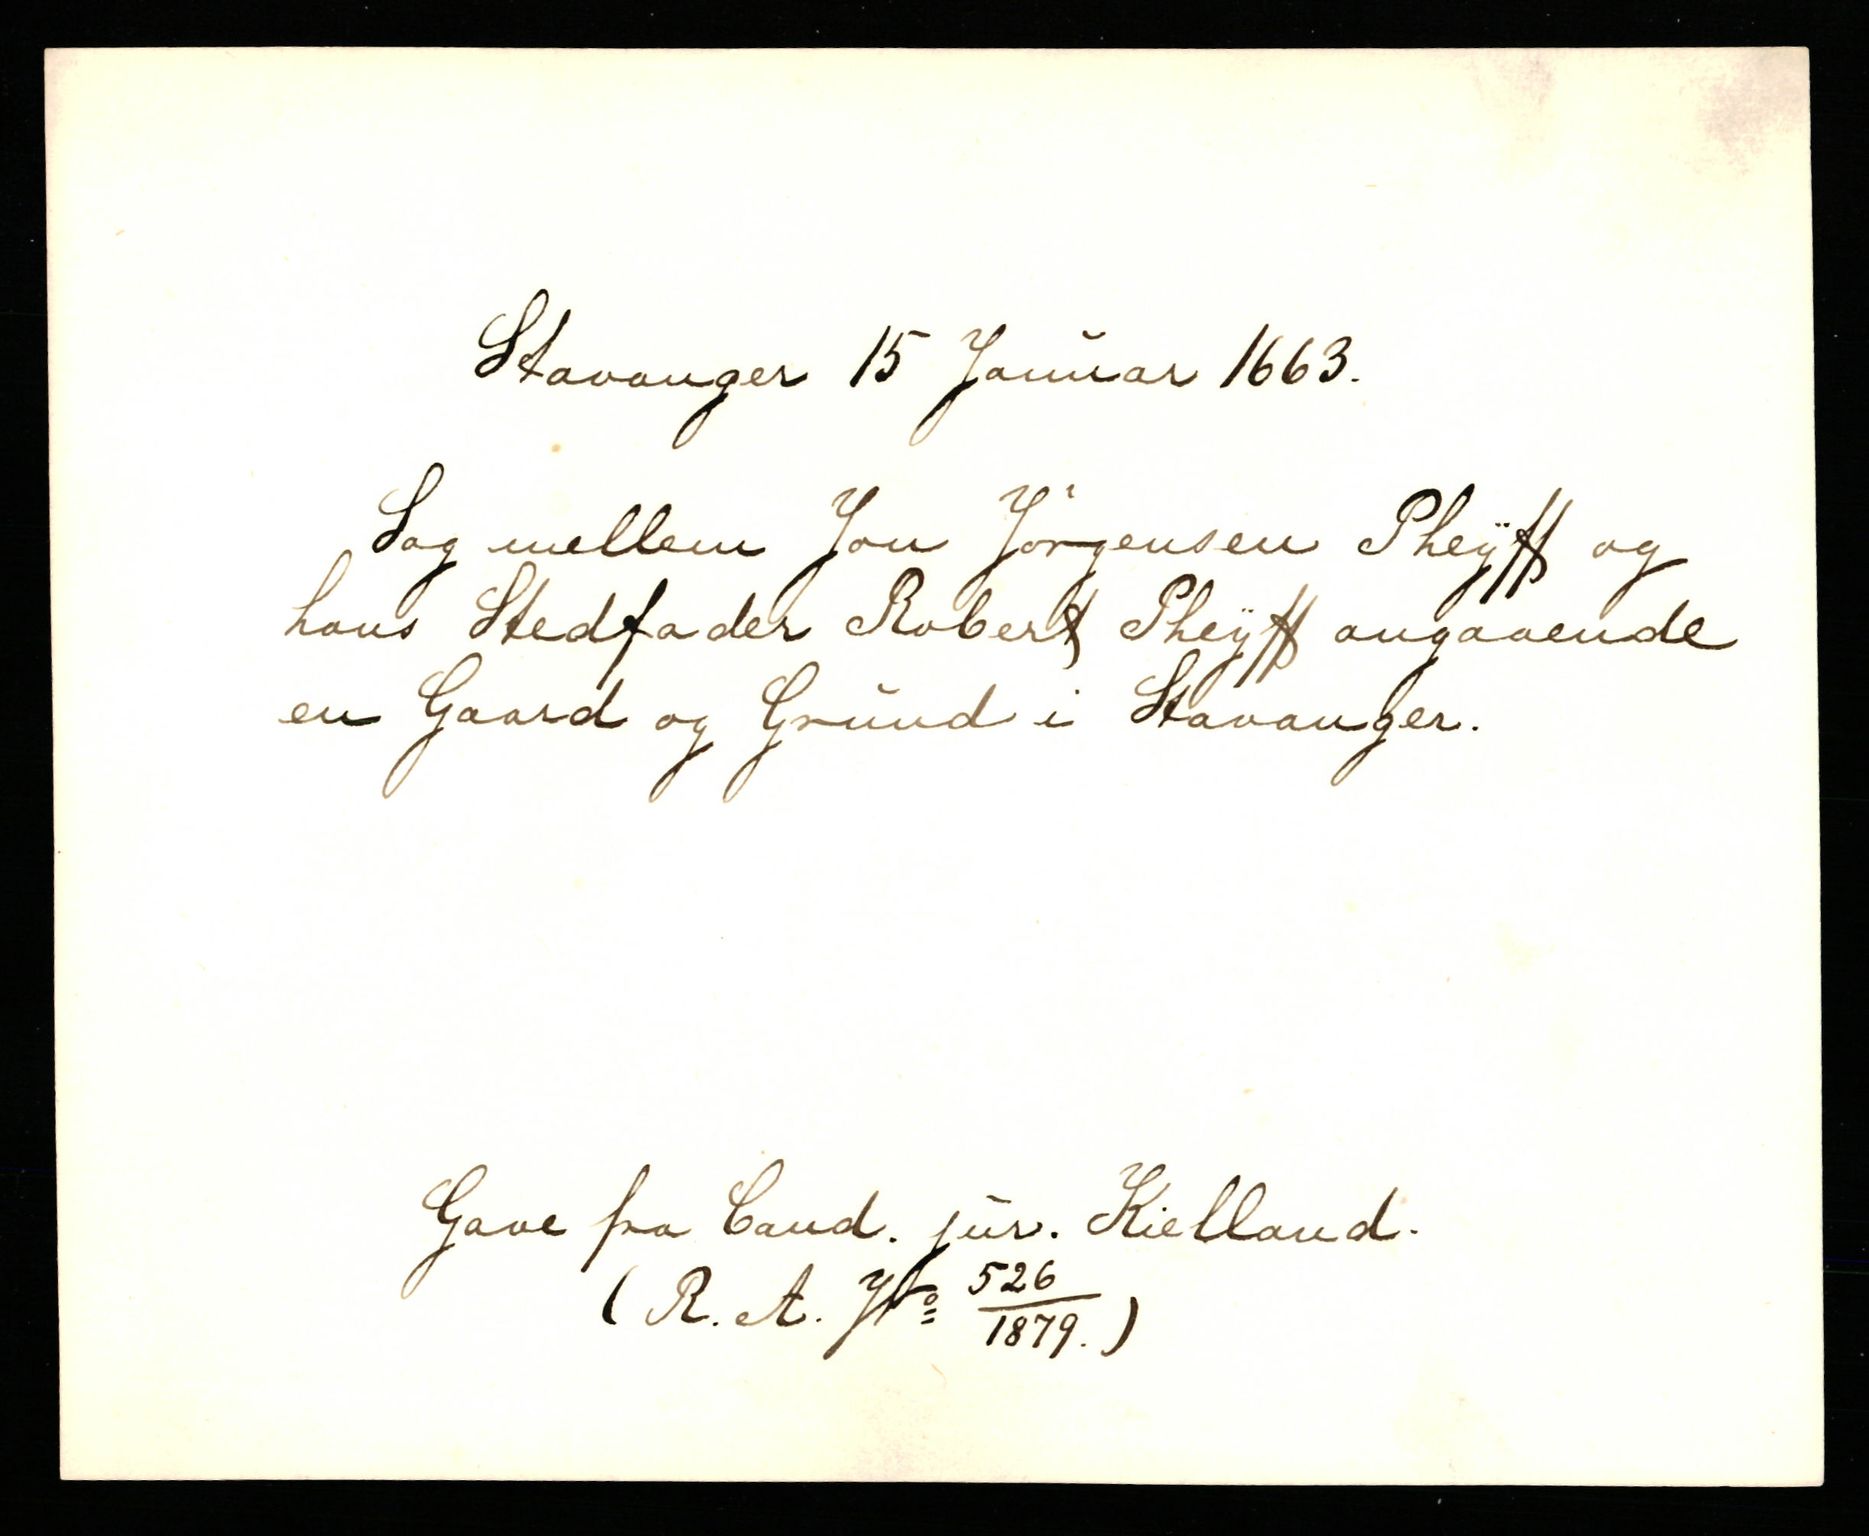 Stavanger 15 Januar 1663.
Sag mellem Jon Jörgensen Pheÿff og
hans Stedfader Robert Pheÿff angaaende
en Gaard og Grund i Stavanger.
Gave fra Cand. jur. Kielland.
(R. A. No 526
1879.)